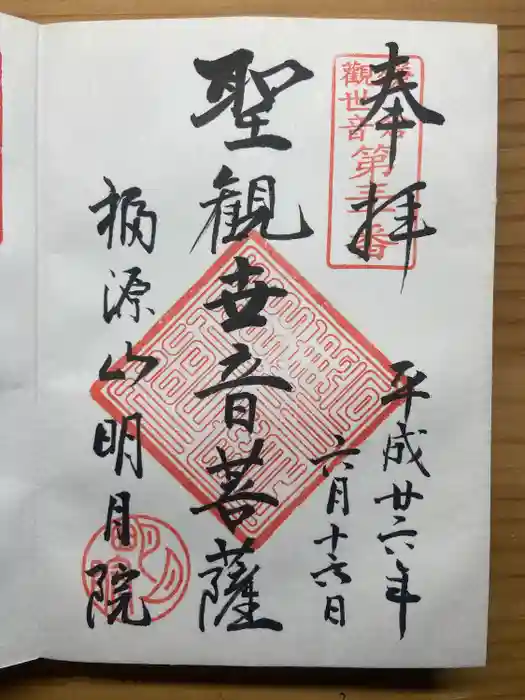 奉拝
觀世音
平成廿六年
六月十六日
聖観世音菩薩
福源山明月院